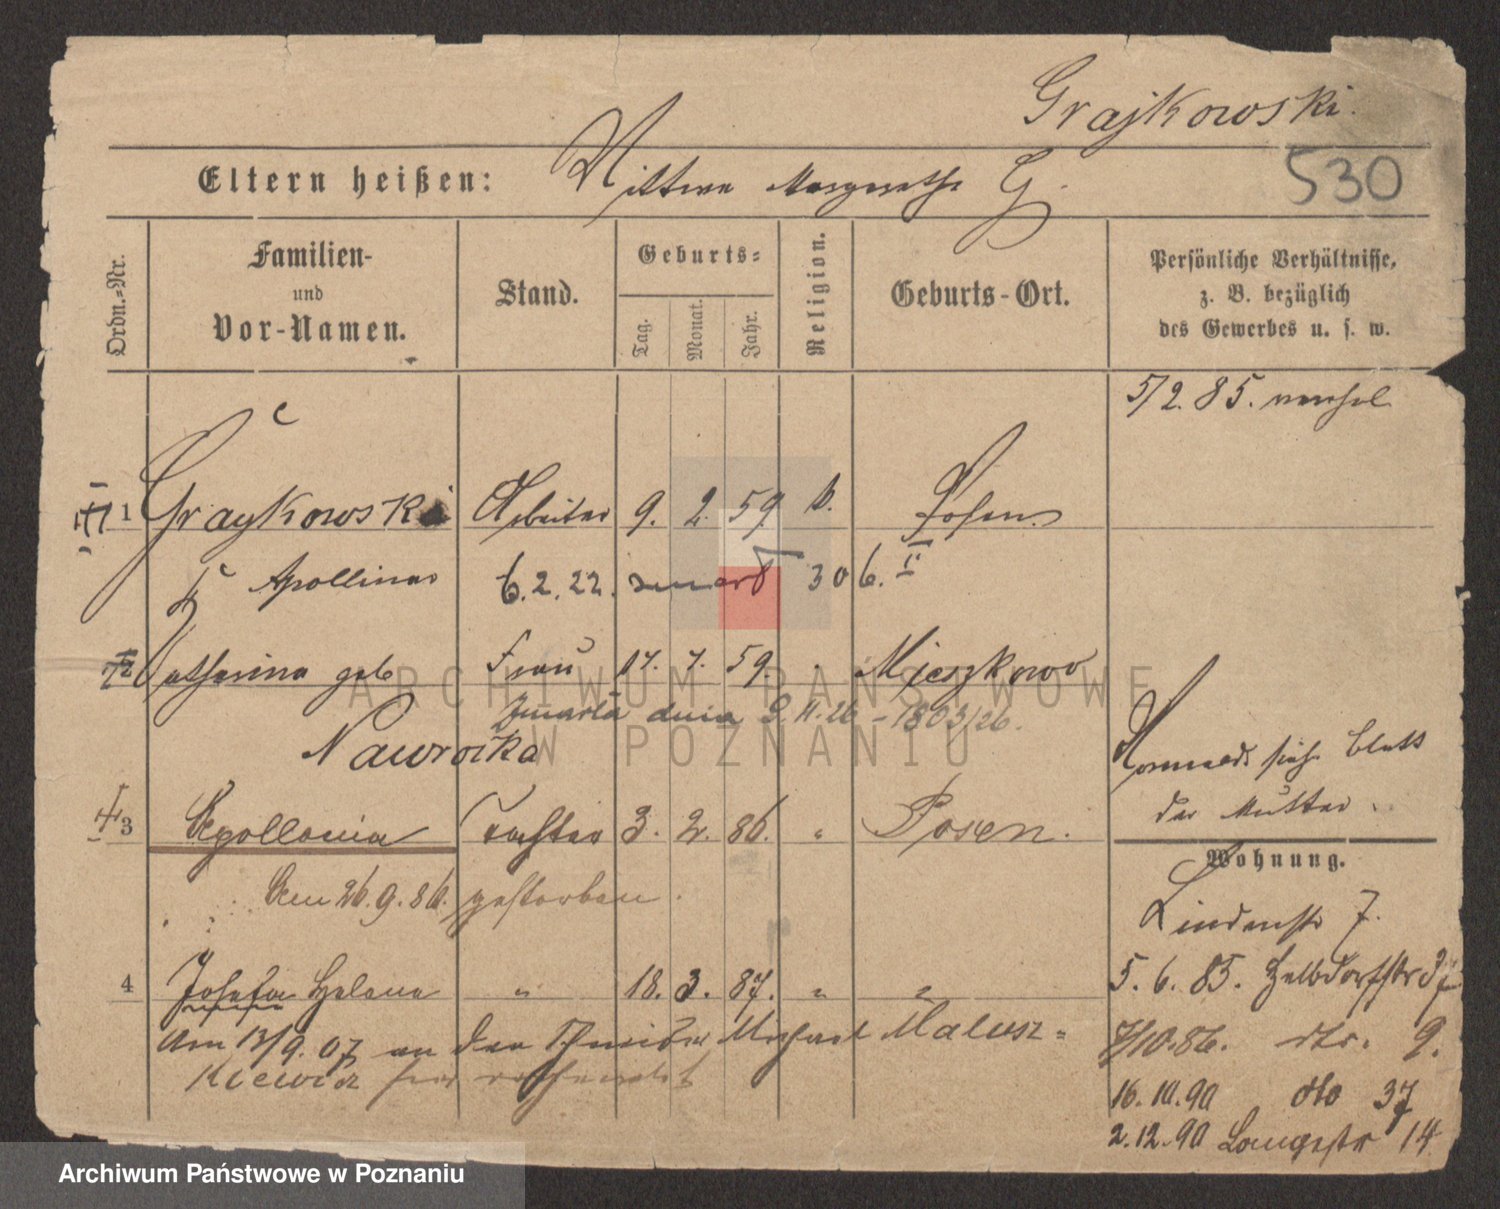 Grajkowski.
530
Eltern heißen: Wittwe Margarethe G.
Ordn.-Nr.
Familien-
und
Vor-Namen.
Stand.
Geburts-
Tag.
Monat.
Jahr.
Religion.
Geburts-Ort.
Persönliche Verhältnisse,
z. B. bezüglich
des Gewerbes u. s. w.
5/2. 85.
1 Graykowski Arbeiter 9. 2. 59. k. Posen.
Apollinar 6.2.22. zmarł 306. II
2 Catharina geb Frau 17. 7. 59. " Mieszkowo
Zmarła dnia 9.II.26 - 1803/26.
Nawrocka
Vormerk siehe Blatt
der Mutter.
3 Apollonia Tochter 3. 2. 86. " Posen.
Am 26.9.86. gestorben.
Wohnung.
Lindenstr 7.
4 Josefa Helene " 18. 3. 87. " "
5. 6. 85. Halbdorfstr 37
Am 13/9. 07 an den Schneider Michael Malusz=
kiewicz hier verheiratet
7/10.86. dto. 9.
16.10.90 dto 37
2.12.90 Langestr 14
ARCHIWUM PAŃSTWOWE
W POZNANIU
Archiwum Państwowe w Poznaniu